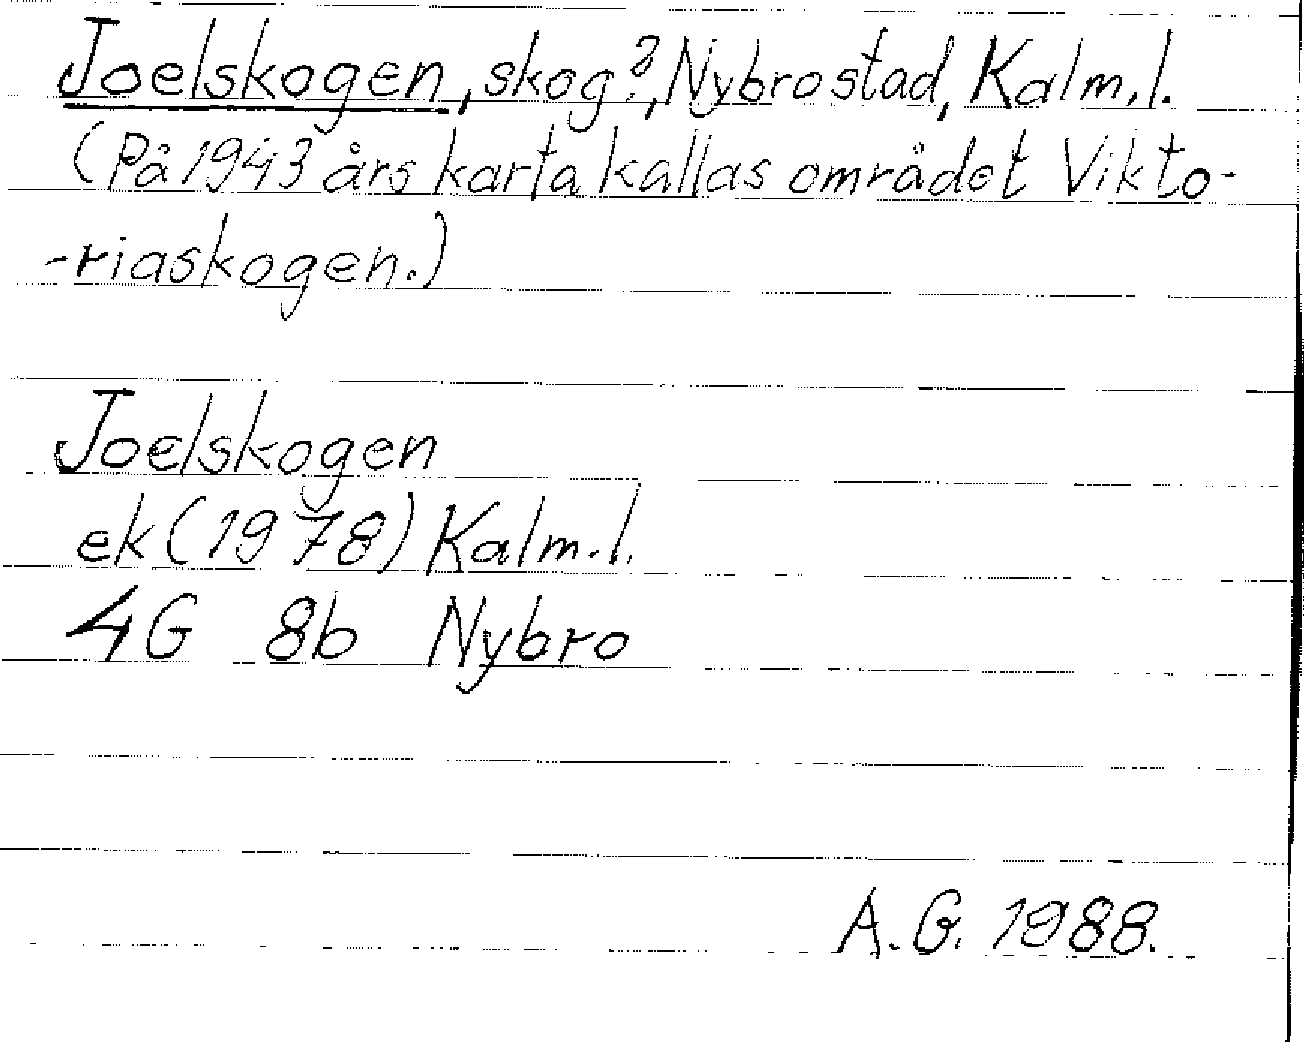 Joelskogen, skog?, Nybro stad, Kalm.l.
(På 1943 års karta kallas området Vikto-
-riaskogen.)
Joelskogen
ek (1978) Kalm.l.
4G 8b Nybro
A.G. 1988.